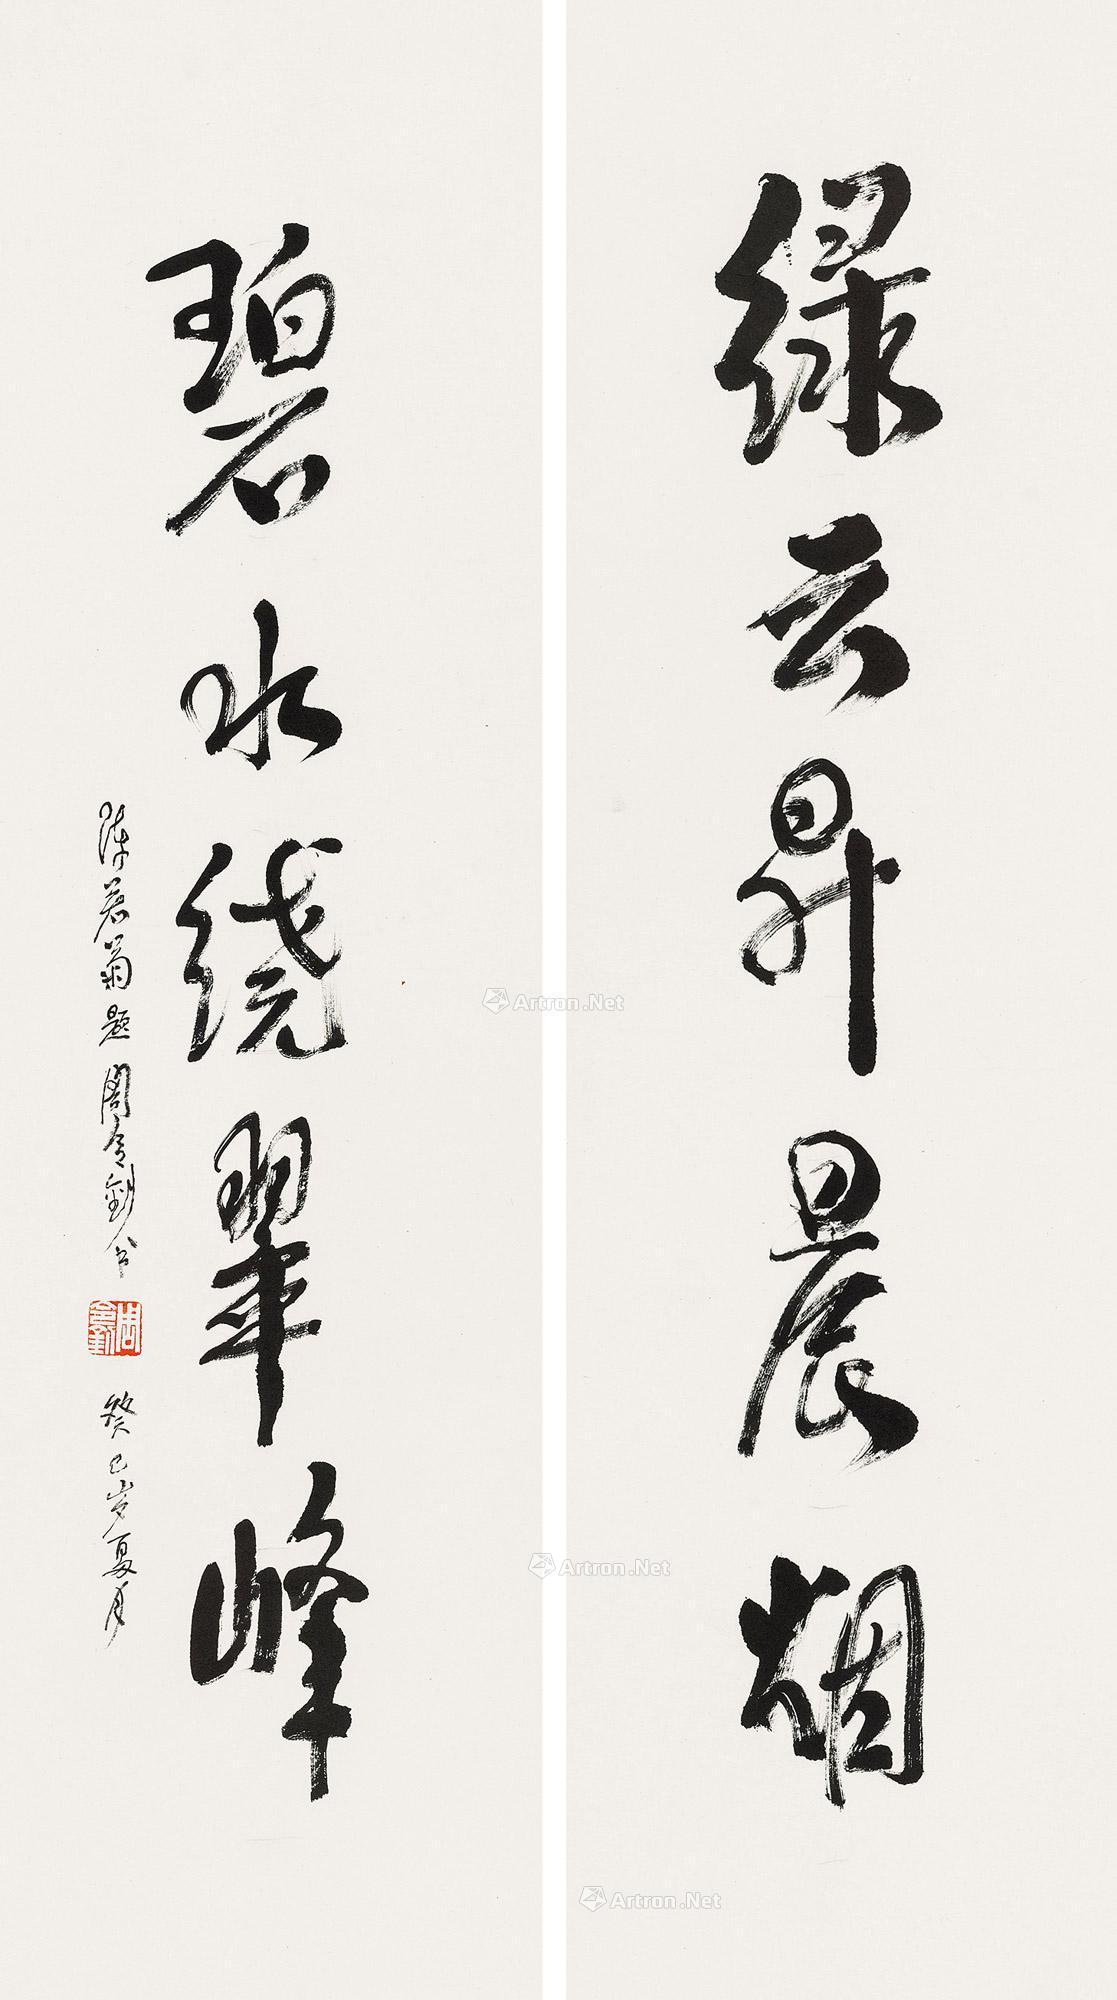 绿云昇晨烟
碧水绕翠峰
陈若菊题周令钊书
周令钊
癸巳岁夏月
Artron.Net
Artron.Net
Artron.Net